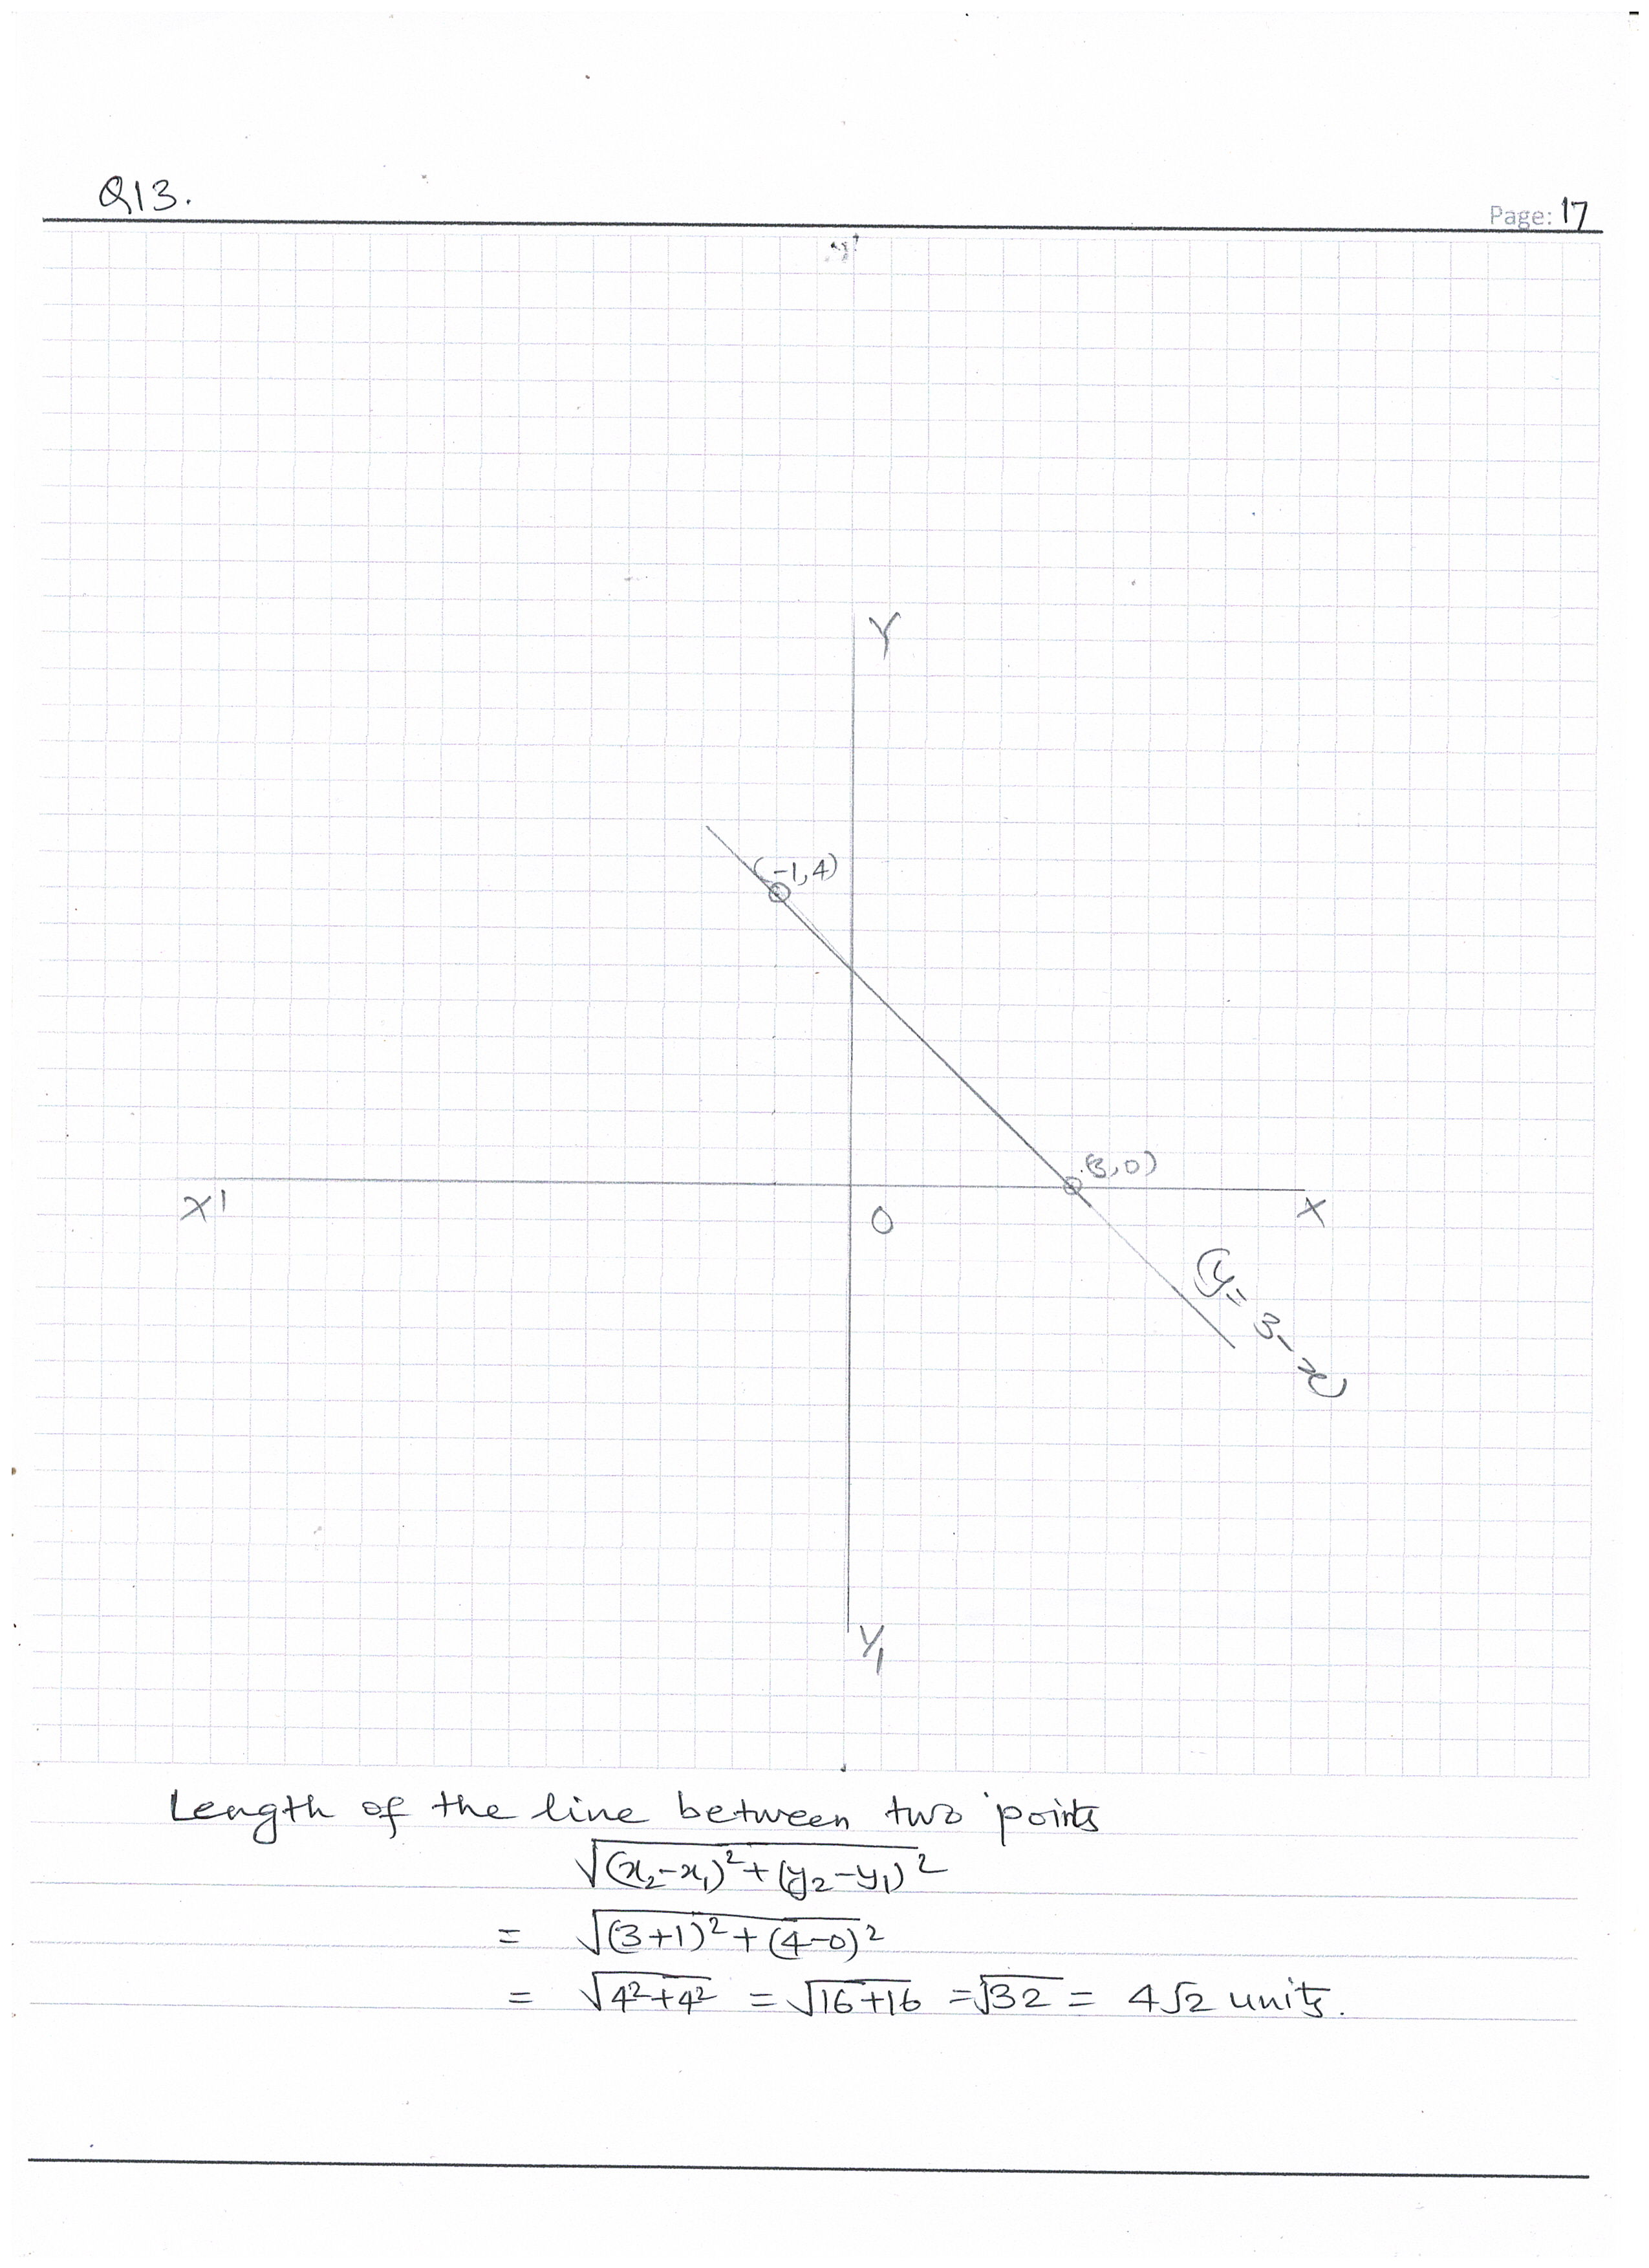 Q13.
Page: 17
Y
(-1,4)
(3,0)
X'
O
X
y = 3-x
Y'
Length of the line between two points
√(x₂-x₁)²+(y₂-y₁)²
= √(3+1)²+(4-0)²
= √4²+4² = √16+16 = √32 = 4√2 units.